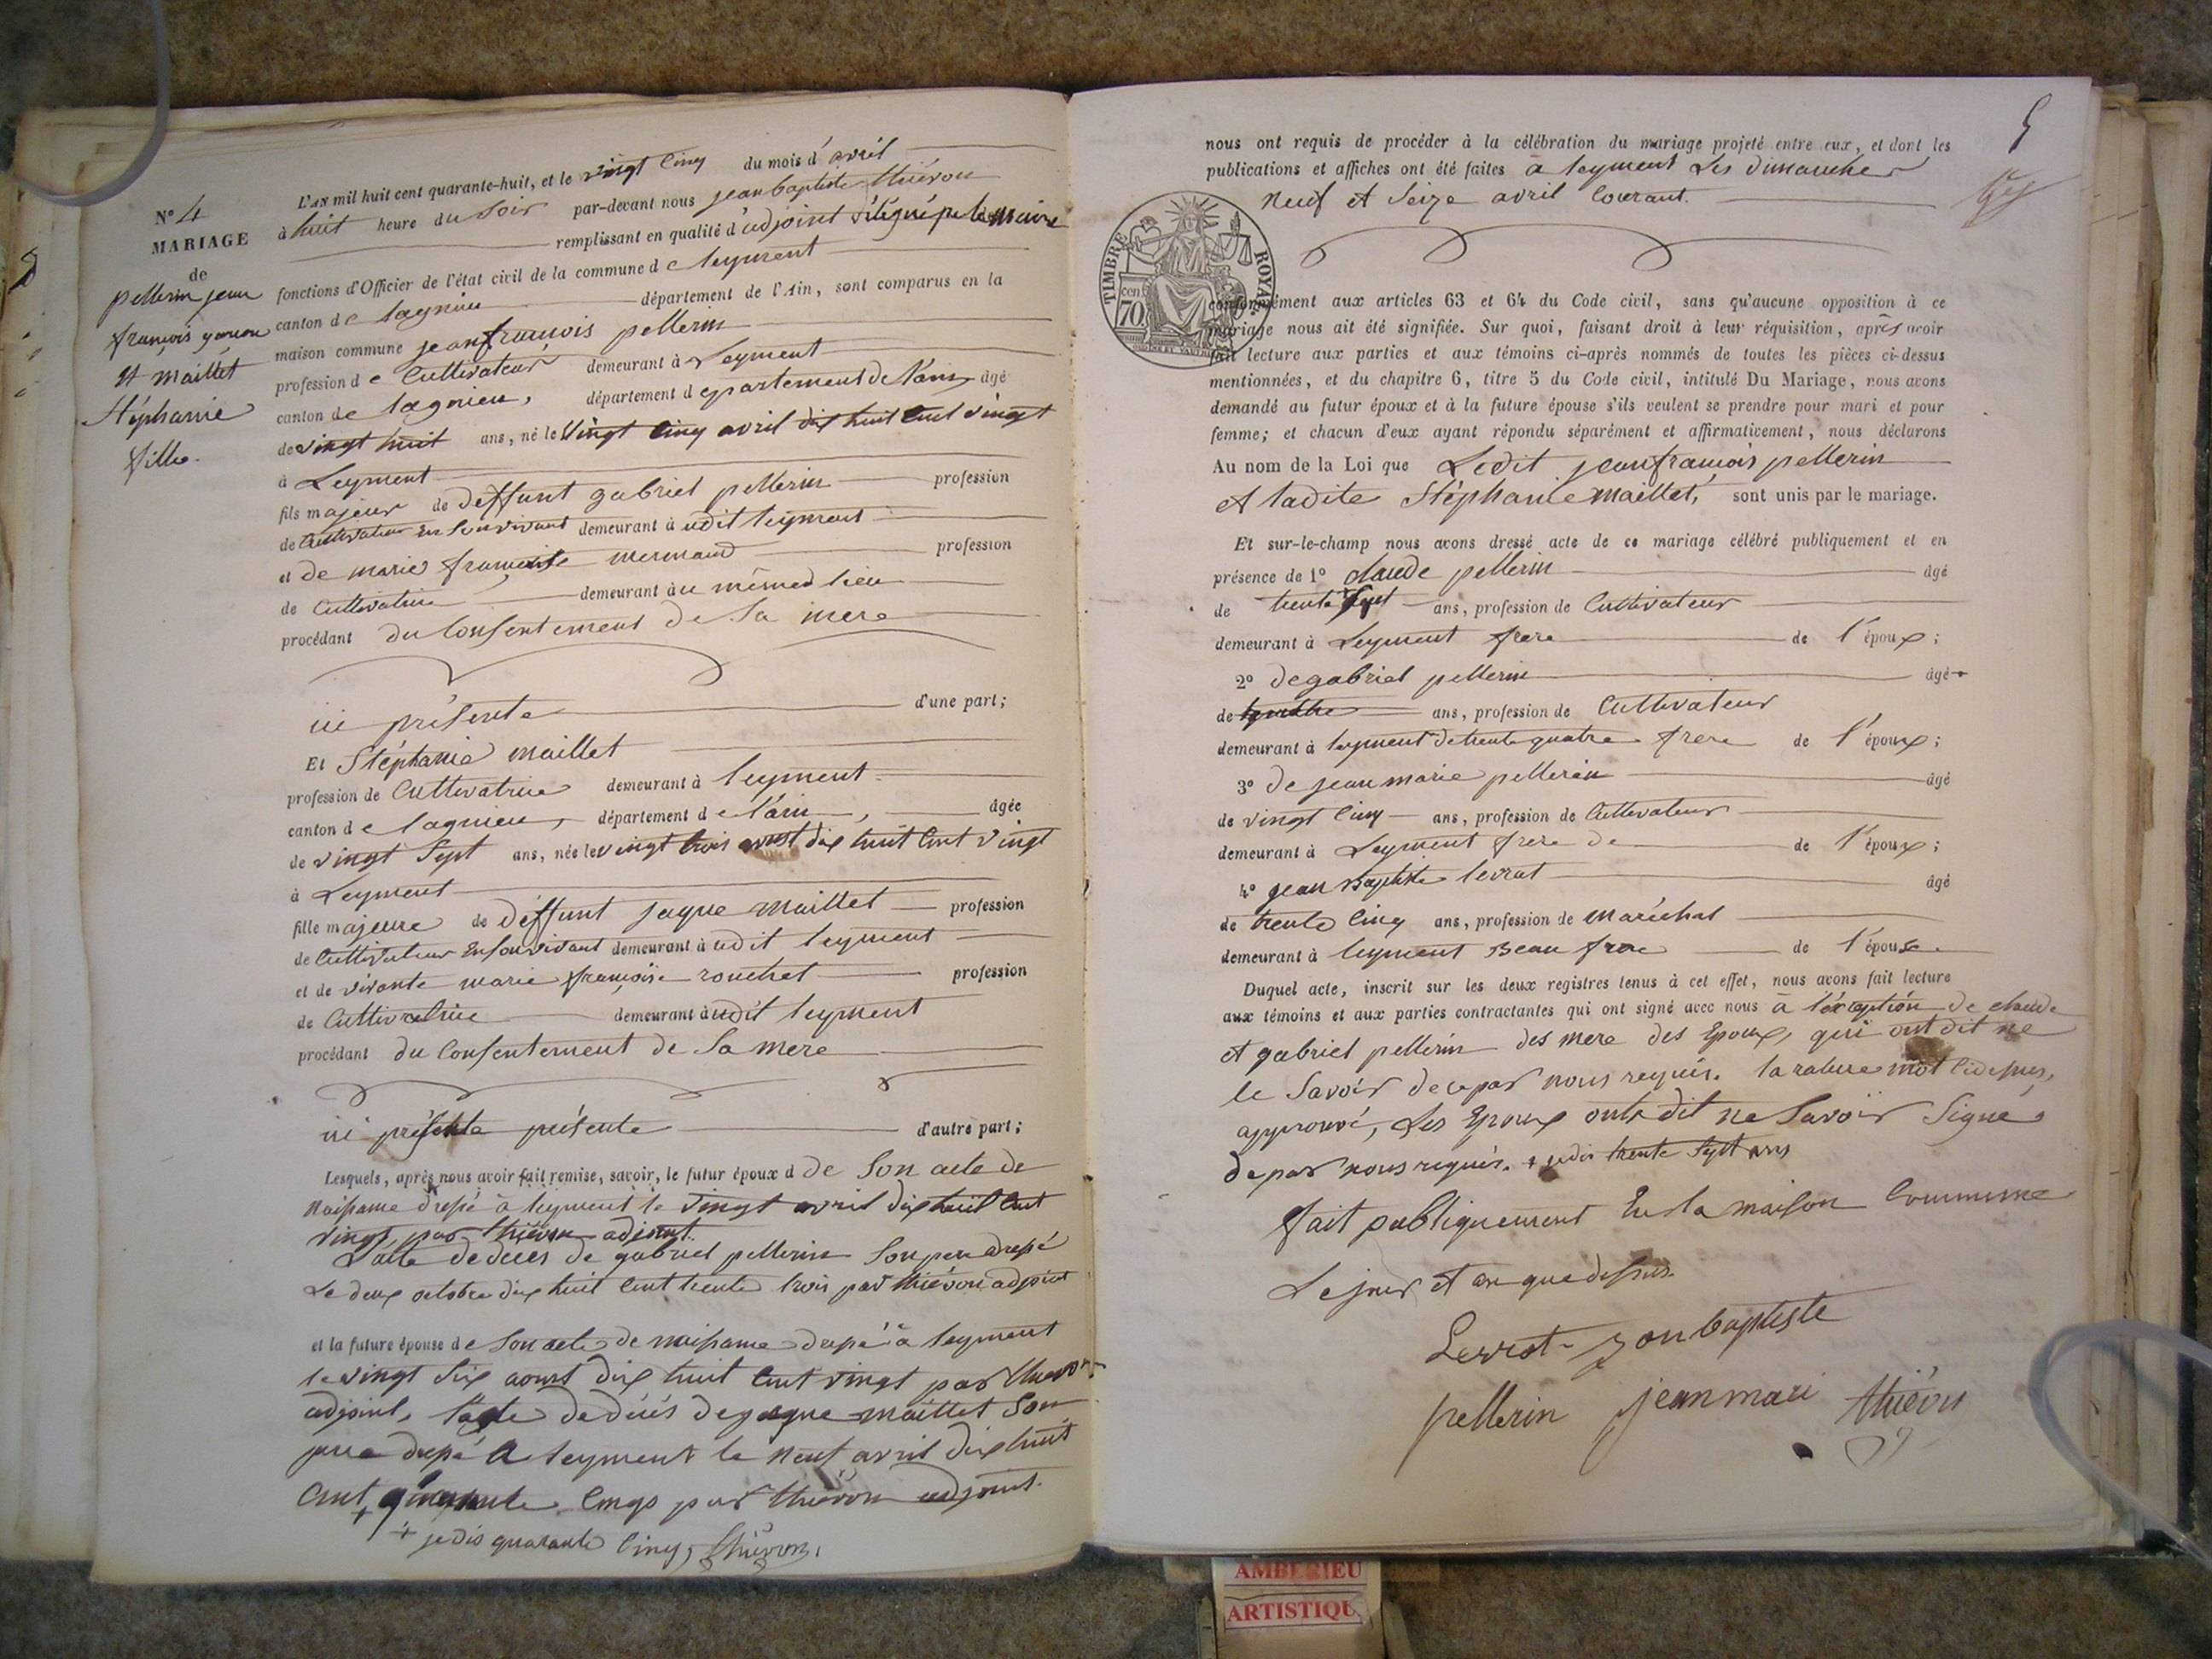 N° 4
MARIAGE
de
pellerin jean
françois garçon
et maillet
Stéphanie
fille.
L'AN mil huit cent quarante-huit, et le vingt cinq du mois d'avril
à huit heure du Soir par-devant nous jean baptiste thiévon
remplissant en qualité d'adjoint délégué par le maire
fonctions d'Officier de l'état civil de la commune de leyment
canton de lagnieu département de l'Ain, sont comparus en la
maison commune jean françois pellerin
profession de Cultivateur demeurant à Leyment
canton de lagnieu, département departement de l'ain, âgé
de vingt huit ans, né le vingt cinq avril dix huit cent vingt
à Leyment
fils majeur de deffunt gabriel pellerin profession
de Cultivateur en son vivant demeurant à udit leyment
et de marie françoise mermand profession
de Cultivatrice demeurant à u même lieu
procédant du Consentement de Sa mere
ici présente d'une part;
Et Stéphanie maillet
profession de Cultivatrice demeurant à leyment
canton de lagnieu, département de l'ain, âgée
de vingt Sept ans, née le vingt trois aoust dix huit cent vingt
à Leyment
fille majeure de déffunt jaque maillet profession
de Cultivateur En son vivant demeurant à udit leyment
et de vivante marie françoise rouchet profession
de Cultivatrice demeurant à udit leyment
procédant du Consentement de Sa mere
ici présente présente d'autre part;
Lesquels, après nous avoir fait remise, savoir, le futur époux d de Son acte de
naissance dressé à leyment le vingt avril dix huit cent
vingt, par thiévon adjoint.
L'acte de deces de gabriel pellerin Son pere dressé
Le deux octobre dix huit cent trente trois par thiévon adjoint
et la future épouse de Son acte de naissance dressé à leyment
le vingt Six aoust dix huit cent vingt par thievon
adjoint, l'acte de décès de jaque maillet Son
pere dressé a leyment le neuf avril dix huit
cent + cinqs par thiévon adjoint.
+ je dis quarante Cinq, thiévon,
5
nous ont requis de procéder à la célébration du mariage projeté entre eux, et dont les
publications et affiches ont été faites à leyment Les dimanches
neuf et Seize avril Courant.
TIMBRE ROYAL
cen. 70
conformément aux articles 63 et 64 du Code civil, sans qu'aucune opposition à ce
mariage nous ait été signifiée. Sur quoi, faisant droit à leur réquisition, après avoir
fait lecture aux parties et aux témoins ci-après nommés de toutes les pièces ci-dessus
mentionnées, et du chapitre 6, titre 5 du Code civil, intitulé Du Mariage, nous avons
demandé au futur époux et à la future épouse s'ils veulent se prendre pour mari et pour
femme; et chacun d'eux ayant répondu séparément et affirmativement, nous déclarons
Au nom de la Loi que Ledit jean françois pellerin
et ladite Stéphanie maillet, sont unis par le mariage.
Et sur-le-champ nous avons dressé acte de ce mariage célébré publiquement et en
présence de 1° claude pellerin âgé
de trente Sept ans, profession de Cultivateur
demeurant à Leyment frere de l'époux;
2° de gabriel pellerin âgé
de ans, profession de Cultivateur
demeurant à leyment de trente quatre frere de l'époux;
3° de jean marie pellerin âgé
de vingt Cinq ans, profession de Cultivateur
demeurant à Leyment frere de de l'époux;
4° jean Baptiste levrat âgé
de trente Cinq ans, profession de maréchal
demeurant à leyment Beau frere de l'épouse.
Duquel acte, inscrit sur les deux registres tenus à cet effet, nous avons fait lecture
aux témoins et aux parties contractantes qui ont signé avec nous à l'éxception de claude
et gabriel pellerin des mere des Epoux, qui ont dit ne
le Savoir de ce par nous requis. la rature mot Cidessus,
approuvé, Les Epoux onts dit ne Savoir Signé
de par nous requis. + jedis trente Sept ans
fait publiquement En la maison Commune
Le jour et an que dessus.
Levrat jean baptiste
pellerin jean mari thiévon
AMBERIEU
ARTISTIQU